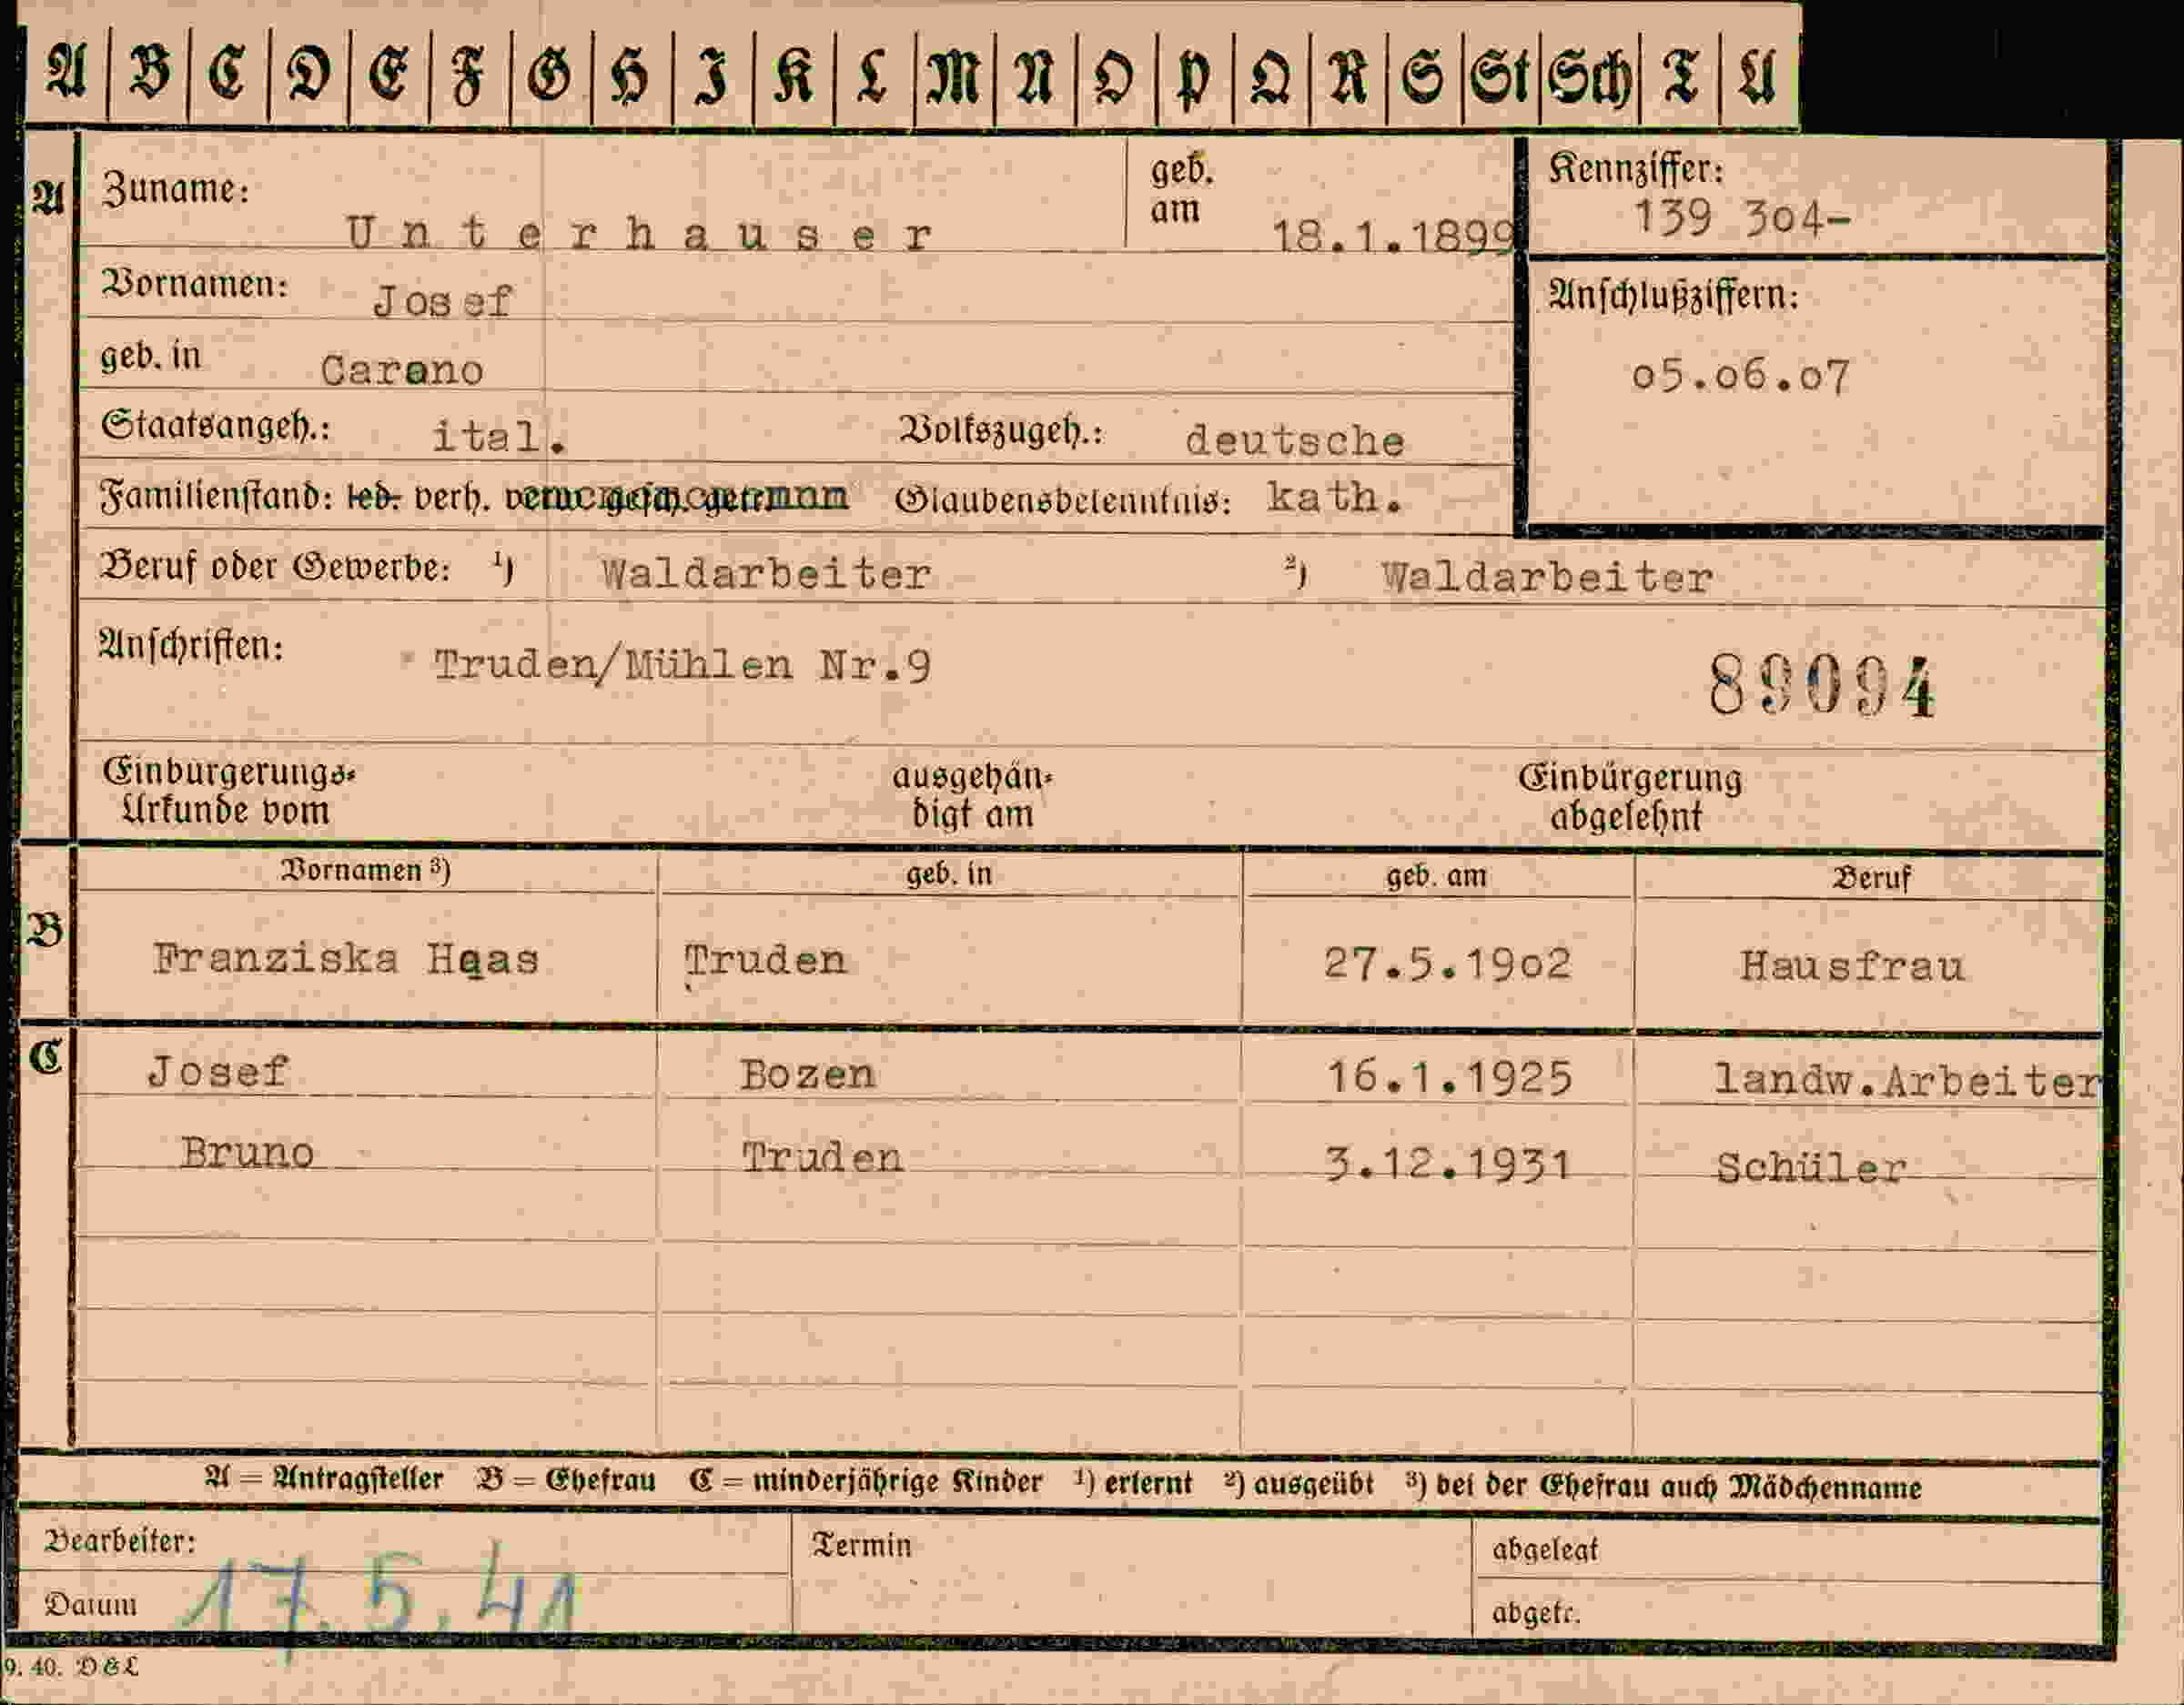 A B C D E F G H I K L M N O P Q R S St Sch T U
A Zuname: Unterhauser geb. am 18.1.1899 Kennziffer: 139 3o4-
Vornamen: Josef Anschlußziffern:
geb. in Carano o5.o6.o7
Staatsangeh.: ital. Volkszugeh.: deutsche
Familienstand: led. verh. Glaubensbekenntnis: kath.
Beruf oder Gewerbe: 1) Waldarbeiter 2) Waldarbeiter
Anschriften: Truden/Mühlen Nr.9 89094
Einbürgerungs- ausgehän- Einbürgerung
Urkunde vom digt am abgelehnt
Vornamen 3) geb. in geb. am Beruf
B Franziska Haas Truden 27.5.19o2 Hausfrau
C Josef Bozen 16.1.1925 landw.Arbeiter
Bruno Truden 3.12.1931 Schüler
A = Antragsteller B = Ehefrau C = minderjährige Kinder 1) erlernt 2) ausgeübt 3) bei der Ehefrau auch Mädchenname
Bearbeiter: Termin abgelegt
Datum 17.5.41 abgetr.
9. 40. D&L